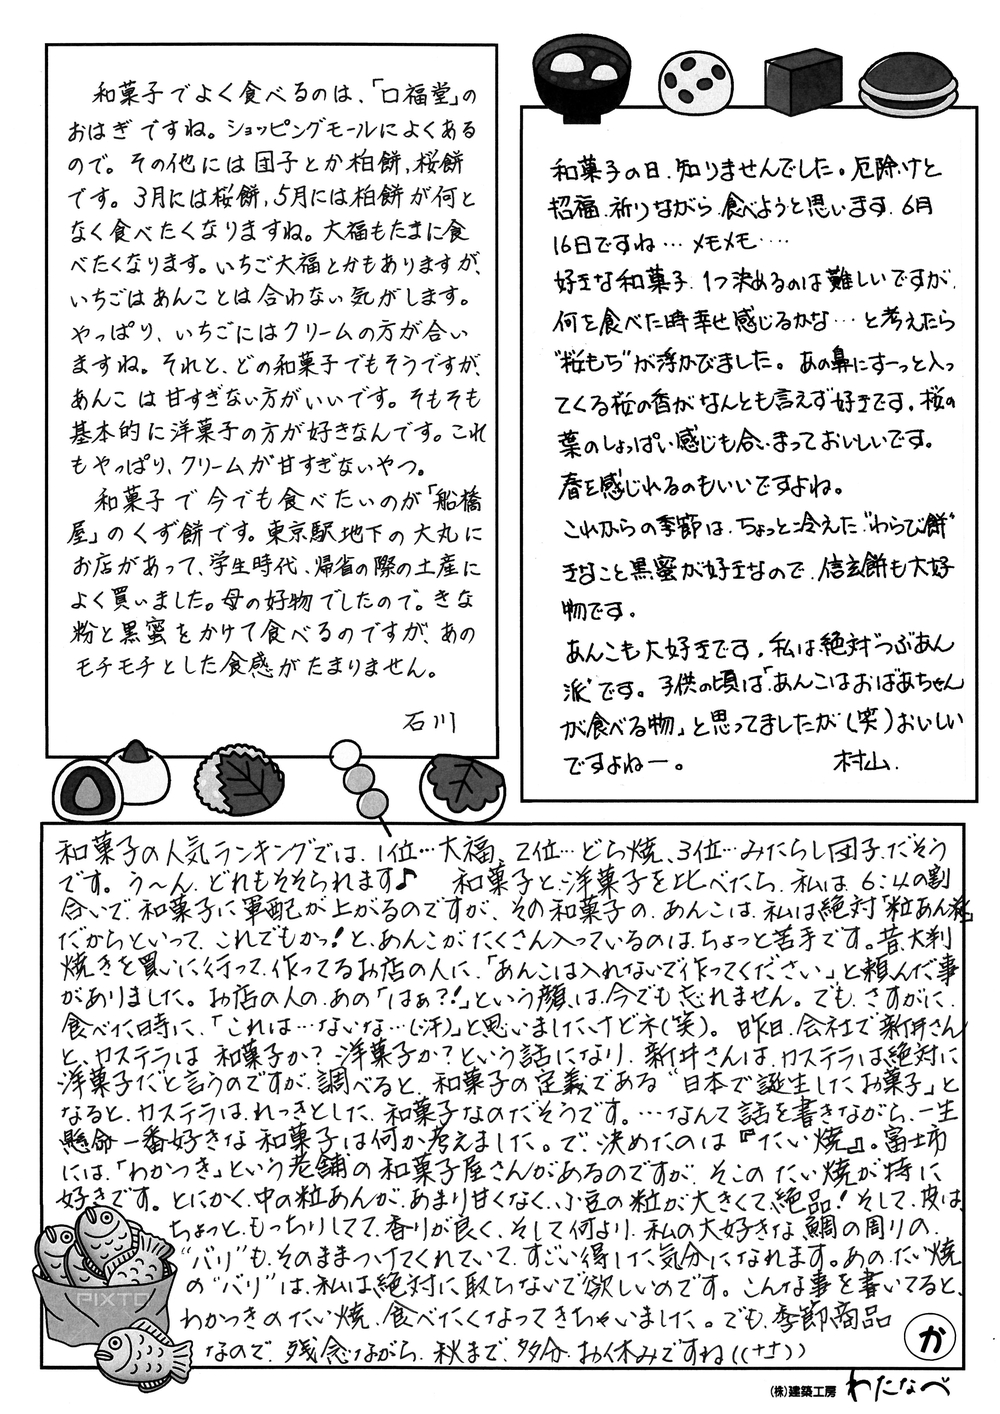 和菓子でよく食べるのは、「口福堂」の
おはぎですね。ショッピングモールによくある
ので。その他には団子とか柏餅,桜餅
です。3月には桜餅,5月には柏餅が何と
なく食べたくなりますね。大福もたまに食
べたくなります。いちご大福とかもありますが、
いちごはあんことは合わない気がします。
やっぱり、いちごにはクリームの方が合い
ますね。それと、どの和菓子でもそうですが、
あんこは甘すぎない方がいいです。そもそも
基本的に洋菓子の方が好きなんです。これ
もやっぱり、クリームが甘すぎないやつ。
和菓子で今でも食べたいのが「船橋
屋」のくず餅です。東京駅地下の大丸に
お店があって、学生時代、帰省の際の土産に
よく買いました。母の好物でしたので。きな
粉と黒蜜をかけて食べるのですが、あの
モチモチとした食感がたまりません。
石川
和菓子の日、知りませんでした。厄除けと
招福、祈りながら、食べようと思います。6月
16日ですね…メモメモ‥‥
好きな和菓子、1つ決めるのは難しいですが、
何を食べた時幸せ感じるかな…と考えたら
"桜もち"が浮かびました。あの鼻にすーっと入っ
てくる桜の香がなんとも言えず好きです。桜の
葉のしょっぱい感じも合いまっておいしいです。
春を感じれるのもいいですよね。
これからの季節は、ちょっと冷えた"わらび餅"
きなこと黒蜜が好きなので、信玄餅も大好
物です。
あんこも大好きです。私は絶対"つぶあん
派"です。子供の頃は「あんこはおばあちゃん
が食べる物」と思ってましたが(笑)おいしい
ですよねー。
村山.
和菓子の人気ランキングでは、1位…大福、2位…どら焼、3位…みたらし団子だそう
です。う〜ん、どれもそそられます♪ 和菓子と洋菓子を比べたら、私は、6:4の割
合いで、和菓子に軍配が上がるのですが、その和菓子の、あんこは、私は絶対「粒あん派」
だからといって、これでもかっ!と、あんこがたくさん入っているのは、ちょっと苦手です。昔、大判
焼きを買いに行って、作ってるお店の人に、「あんこは入れないで作ってください」と頼んだ事
がありました。お店の人の、あの「はぁ?!」という顔は、今でも忘れません。でも、さすがに、
食べた時に、「これは…ないな…(汗)」と思いましたけどネ(笑)。昨日、会社で新井さん
と、カステラは 和菓子か?洋菓子か?という話になり、新井さんは、カステラは絶対に
洋菓子だと言うのですが、調べると、和菓子の定義である"日本で誕生したお菓子」と
なると、カステラは、れっきとした、和菓子なのだそうです。…なんて話を書きながら、一生
懸命一番好きな和菓子は何か考えました。で、決めたのは『たい焼』。富士市
には、「わかつき」という老舗の和菓子屋さんがあるのですが、そこのたい焼が特に
好きです。とにかく、中の粒あんが、あまり甘くなく、小豆の粒が大きくて、絶品!そして、皮は、
ちょっと、もっちりしてて、香りが良く、そして何より、私の大好きな、鯛の周りの、
"バリ"も、そのままつけてくれていて、すごい得した気分になれます。あの、たい焼
の"バリ"は、私は絶対に取らないで欲しいのです。こんな事を書いてると、
わかつきのたい焼、食べたくなってきちゃいました。でも、季節商品
なので、残念ながら、秋まで、多分、お休みですね((+_+))
か
PIXTA
(株)建築工房 わたなべ